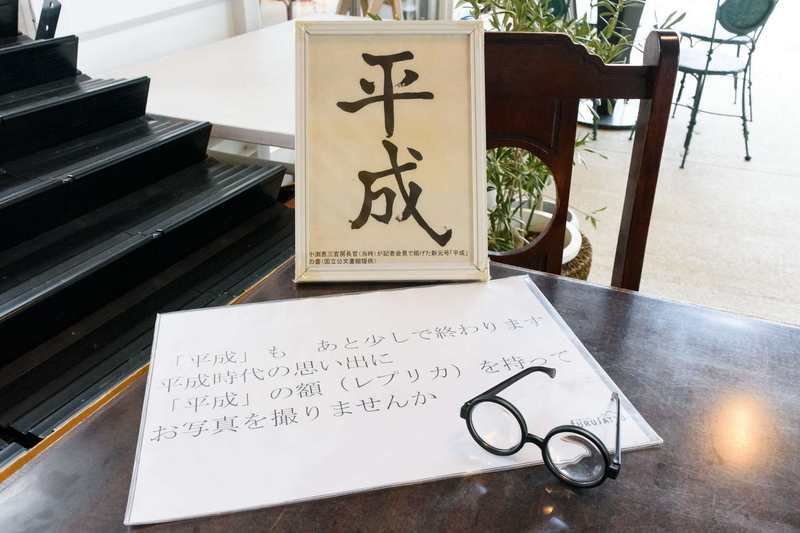 平
成
小渕恵三官房長官(当時)が記者会見で掲げた新元号「平成」
の書(国立公文書館提供)
「平成」も　あと少しで終わります
平成時代の思い出に
「平成」の額（レプリカ）を持って
お写真を撮りませんか